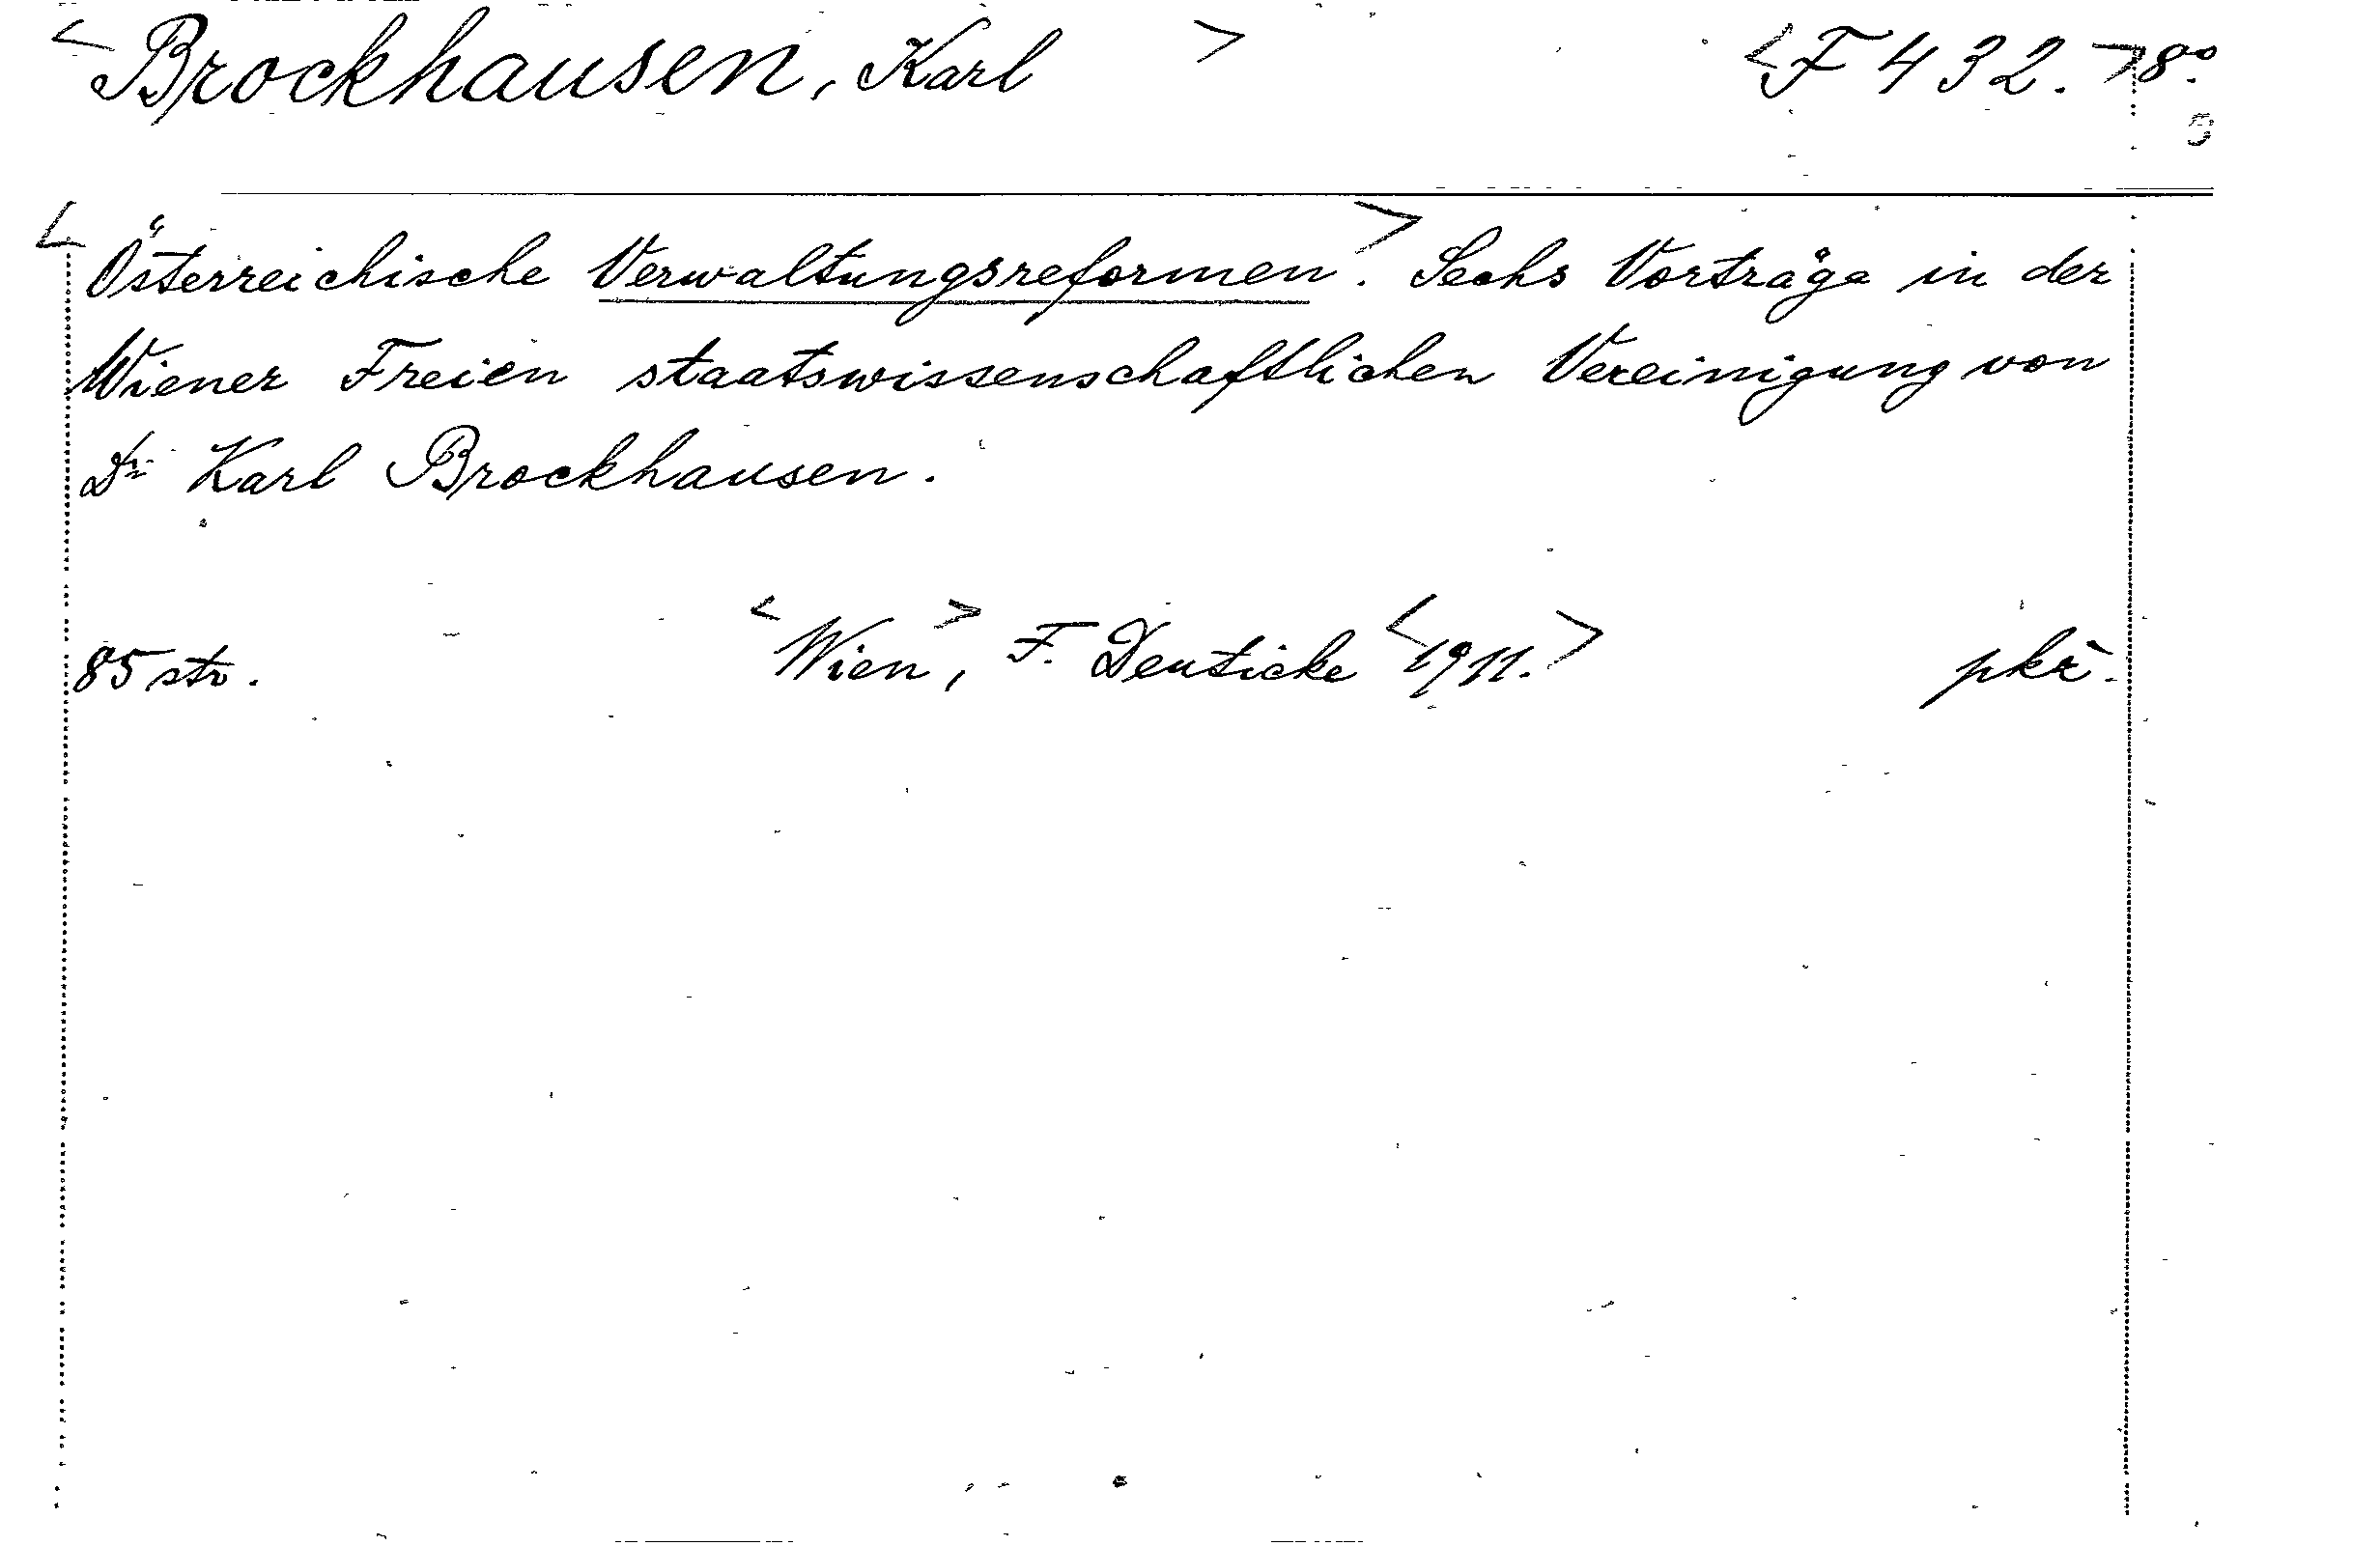 <Brockhausen, Karl> <F 432.> 8º.
<Österreichische Verwaltungsreformen>. Sechs Vorträge in der
Wiener Freien staatswissenschaftlichen Vereinigung von
Dr Karl Brockhausen.
85 str. <Wien>, F. Deuticke <1911.> pkř.